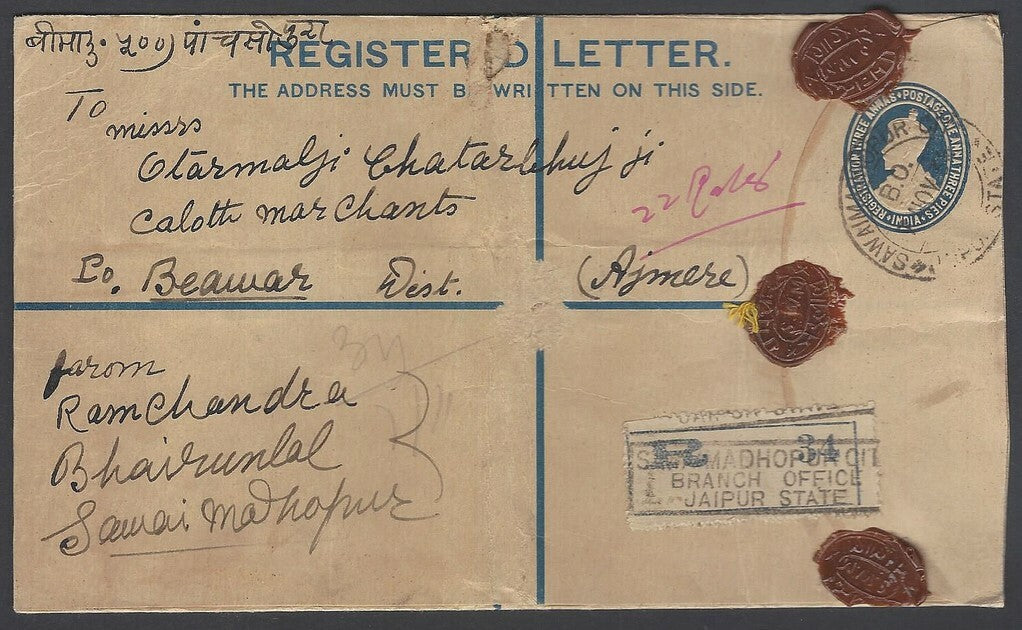 बीमा रु. ५००) पांचसो रुपया
REGISTERED LETTER.
THE ADDRESS MUST BE WRITTEN ON THIS SIDE.
To
missrs
Otarmalji Chatarbhuj ji
Caloth marchants
22 Rolas
Po. Beawar Dist. (Ajmere)
REGISTRATION THREE ANNAS • POSTAGE ONE ANNA THREE PIES • INDIA
B.O.
NOV
SAWAI
STATE
farom
Ramchandra
Bhairunlal
Sawai madhopur
R 34
MADHOPUR CIT
BRANCH OFFICE
JAIPUR STATE